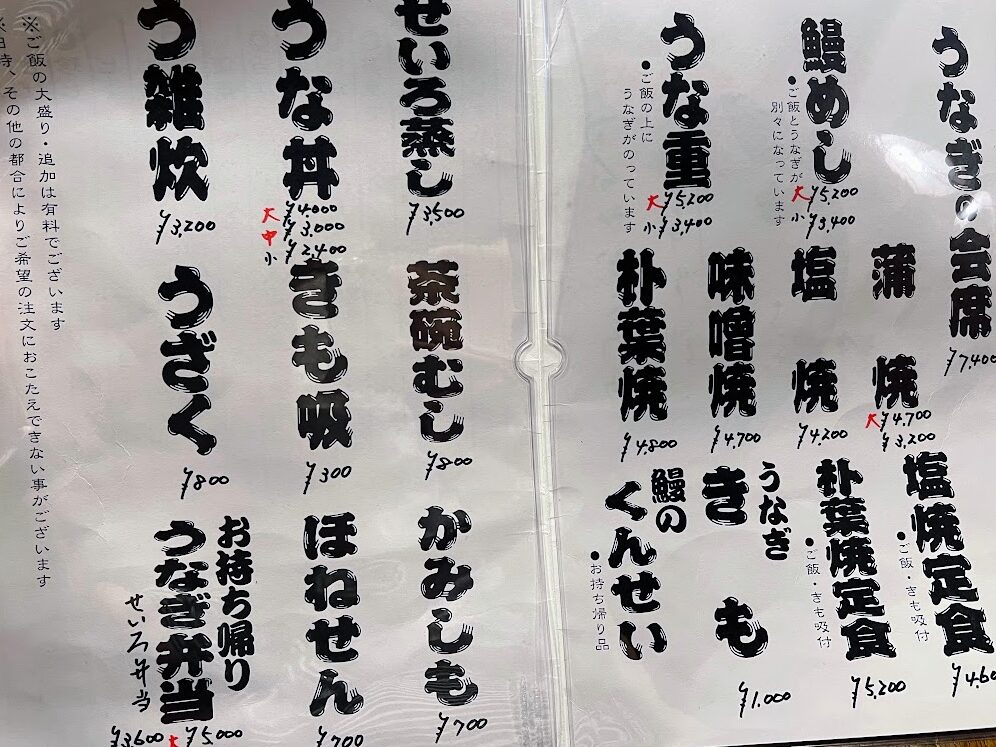 うなぎの会席
¥7,400
鰻めし
●ご飯とうなぎが
別々になっています
大 ¥5,200
小 ¥3,400
うな重
●ご飯の上に
うなぎがのっています
大 ¥5,200
小 ¥3,400
蒲焼
大 ¥4,700
¥3,200
塩焼
¥4,200
味噌焼
¥4,700
朴葉焼
¥4,800
塩焼定食
●ご飯・きも吸付
朴葉焼定食
●ご飯・きも吸付
¥5,200
うなぎ
きも
¥1,000
鰻の
くんせい
●お持ち帰り品
せいろ蒸し
¥3,500
うな丼
大 ¥4,000
中 ¥3,000
小 ¥2,400
う雑炊
¥3,200
茶碗むし
¥800
きも吸
¥300
うざく
¥800
かみしも
¥700
ほねせん
¥700
お持ち帰り
うなぎ弁当
大 ¥5,000
¥3,600
せいろ弁当
※ご飯の大盛り・追加は有料でございます
その他の都合によりご希望の注文におこたえできない事がございます